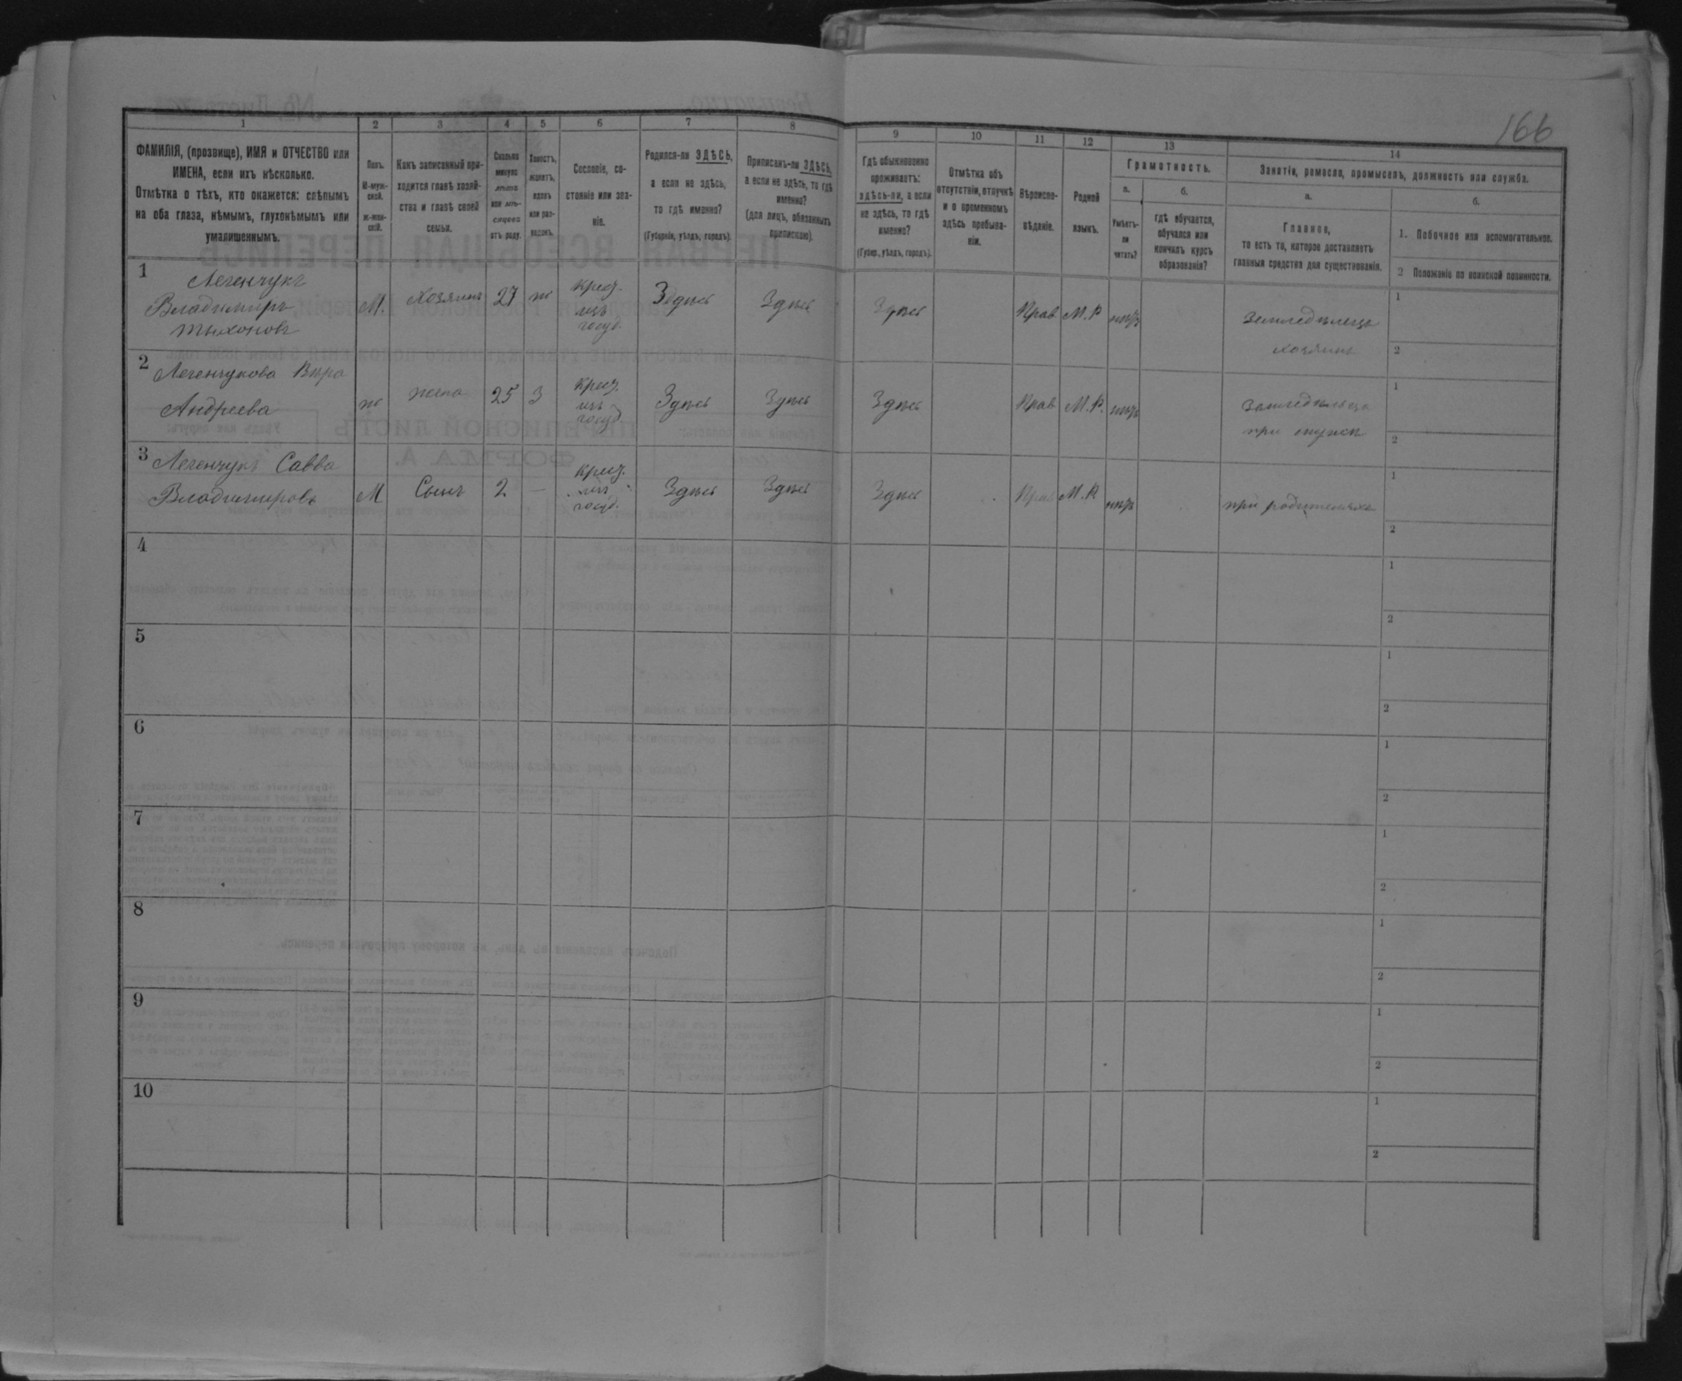 166
1
2
3
4
5
6
7
8
9
10
11
12
13
14
ФАМИЛІЯ, (прозвище), ИМЯ и ОТЧЕСТВО или
ИМЕНА, если ихъ нѣсколько.
Отмѣтка о тѣхъ, кто окажется: слѣпымъ
на оба глаза, нѣмымъ, глухонѣмымъ или
умалишеннымъ.
Полъ.
М-муж-
ской.
Ж-жен-
скій.
Какъ записанный при-
ходится главѣ хозяй-
ства и главѣ своей
семьи.
Сколько
минуло
лѣтъ
или мѣс-
отъ роду.
Холостъ,
женатъ,
вдовъ
или раз-
веденъ.
Сословіе, со-
стояніе или зва-
ніе.
Родился-ли ЗДѢСЬ,
а если не здѣсь,
то гдѣ именно?
(Губернія, уѣздъ, городъ).
Приписанъ-ли ЗДѢСЬ,
а если не здѣсь, то гдѣ
именно?
(для лицъ, обязанныхъ
припискою).
Гдѣ обыкновенно
проживаетъ:
здѣсь-ли, а если
не здѣсь, то гдѣ
именно?
(Губер., уѣздъ, городъ).
Отмѣтка объ
отсутствіи, отлучкѣ
и о временномъ
здѣсь пребыва-
ніи.
Вѣроиспо-
вѣданіе.
Родной
языкъ.
Грамотность.
а.
Умѣетъ-
ли
читать?
б.
гдѣ обучается,
обучался или
кончилъ курсъ
образованія?
Занятіе, ремесло, промыселъ, должность или служба.
а.
Главное,
то есть то, которое доставляетъ
главныя средства для существованія.
б.
1. Побочное или вспомогательное.
2 Положеніе по воинской повинности.
1
Легенчукъ
Владимиръ
Тихоновъ
М.
хозяинъ
27
ж
крес.
изъ
госуд.
Здѣсь
Здѣсь
Здѣсь
Прав
М.Р
нѣтъ
Земледѣлецъ
хозяинъ
1
2
2
Легенчукова Вѣра
Андреева
ж
жена
25
З
крес.
изъ
госуд
Здѣсь
Здѣсь
Здѣсь
Прав
М.Р.
нѣтъ
Земледѣльца
при мужѣ
1
2
3
Легенчукъ Савва
Владимировъ
М
Сынъ
2
—
крес.
изъ
госуд.
Здѣсь
Здѣсь
Здѣсь
Прав
М.Р
нѣтъ
при родителяхъ
1
2
4
1
2
5
1
2
6
1
2
7
1
2
8
1
2
9
1
2
10
1
2